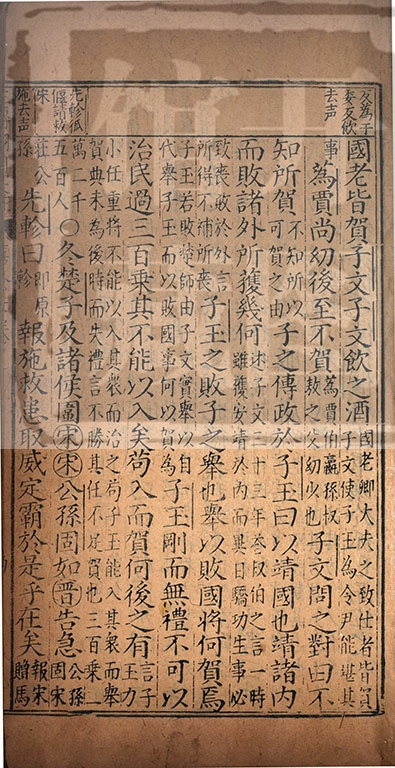 為于
委反飲
去声
國老皆賀子文子文飲之酒
國老卿大夫之致仕者皆賀
子文使子玉為令尹能堪其
事
蒍賈尚幼後至不賀
蒍賈伯嬴孫叔
敖之父幼少也
子文問之對曰不
知所賀
不知所以
可賀之由
子之傳政於子玉曰以靖國也靖諸內
而敗諸外所獲幾何
述子文二十三年荅叔伯之言一時
雖獲安靖於內而異日驕功生事必
致喪敗於外言
所得不補所喪
子玉之敗子之舉也舉以敗國將何賀焉
子玉若敗楚師由子文實舉以自
代舉子玉而以敗國事何以賀為
子玉剛而無禮不可以
治民過三百乘其不能以入矣苟入而賀何後之有
言子
玉力
小任重將不能以入其衆而治之苟子玉能入其衆而舉
賀典未為後時而失禮言不勝其任不足賀也三百乘一
先軫狐
偃請救
宋
萬二千
五百人
○冬楚子及諸侯圍宋宋公孫固如晉告急
公孫
固宋
施去声
莊公
孫
先軫曰
即原
軫
報施救患取威定霸於是乎在矣
報宋
贈馬